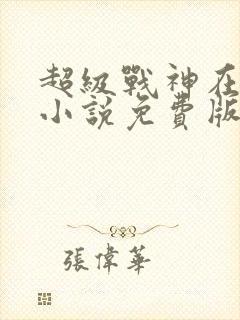 超級戰神在
小說免費版
張偉華